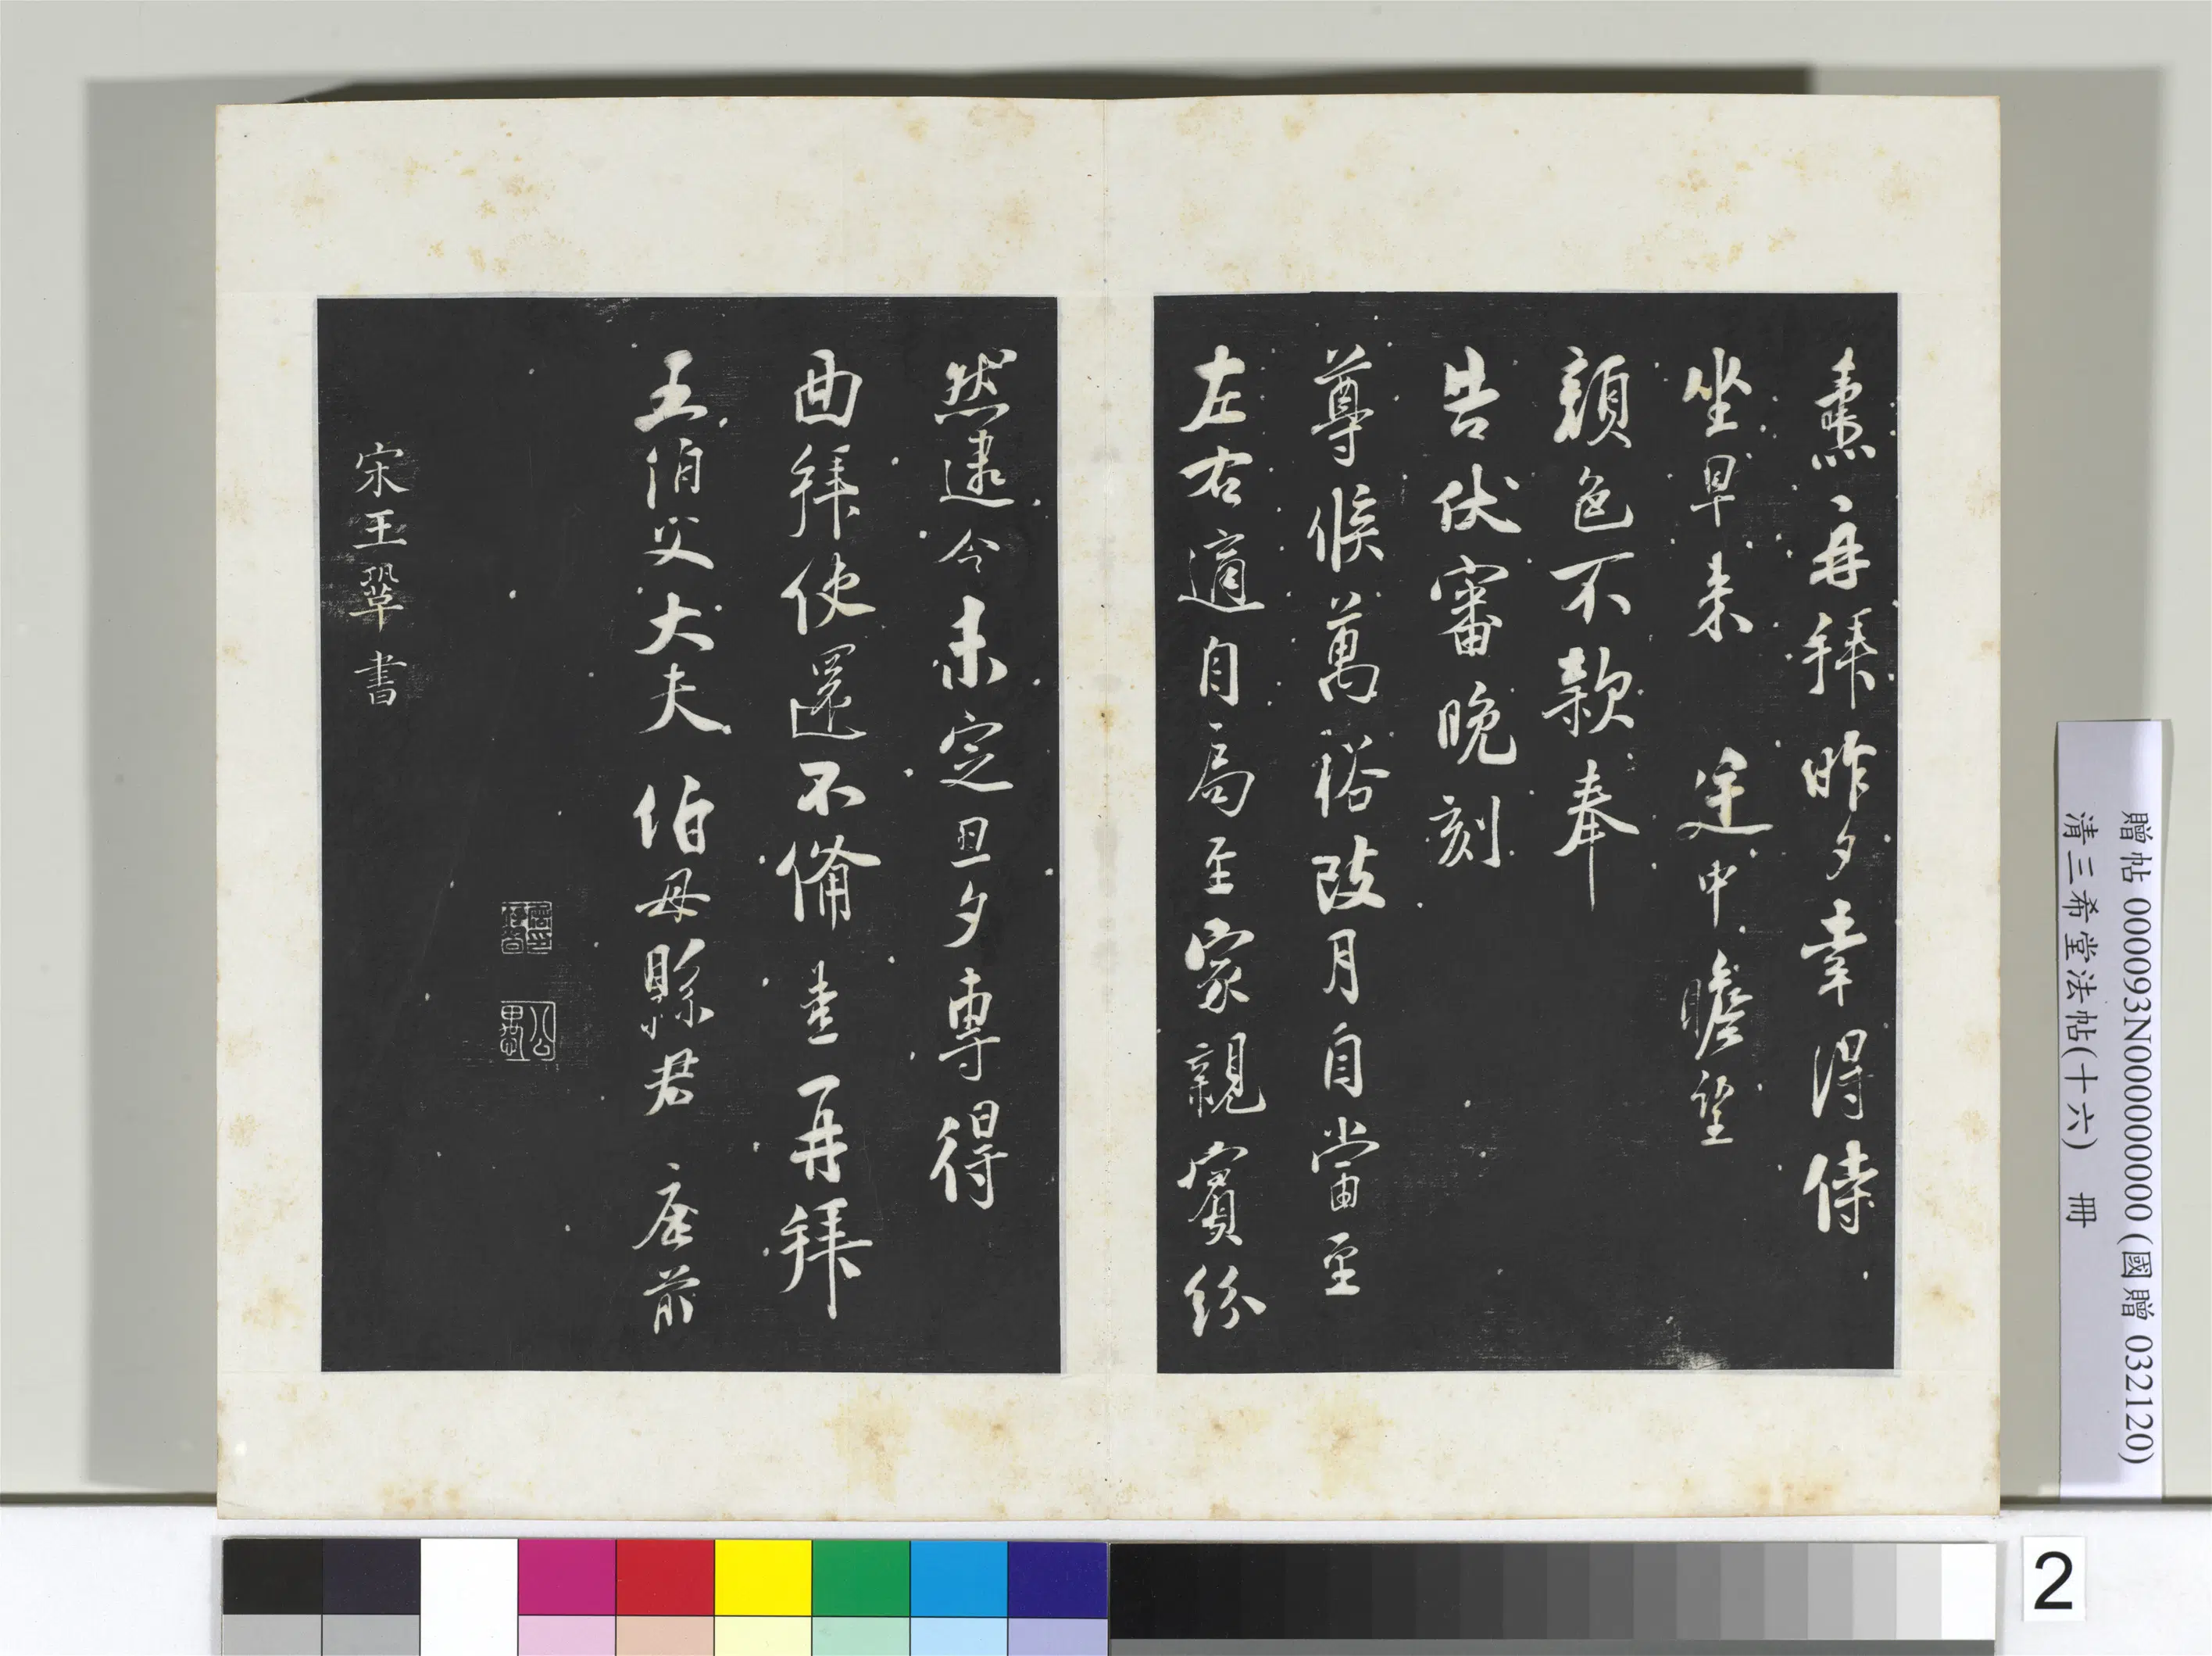 燾再拜昨夕幸得侍
坐早来 途中瞻望
顔色不款奉
告伏審晚刻
尊候萬裕改月自當至
左右適自局至家親賓紛
然逮今未定旦夕專得
面拜使還不備 燾再拜
王伯父大夫 伯母縣君 座前
宋王鞏書
贈帖 000093N000000000 (國贈 032120)
清三希堂法帖(十六) 冊
2